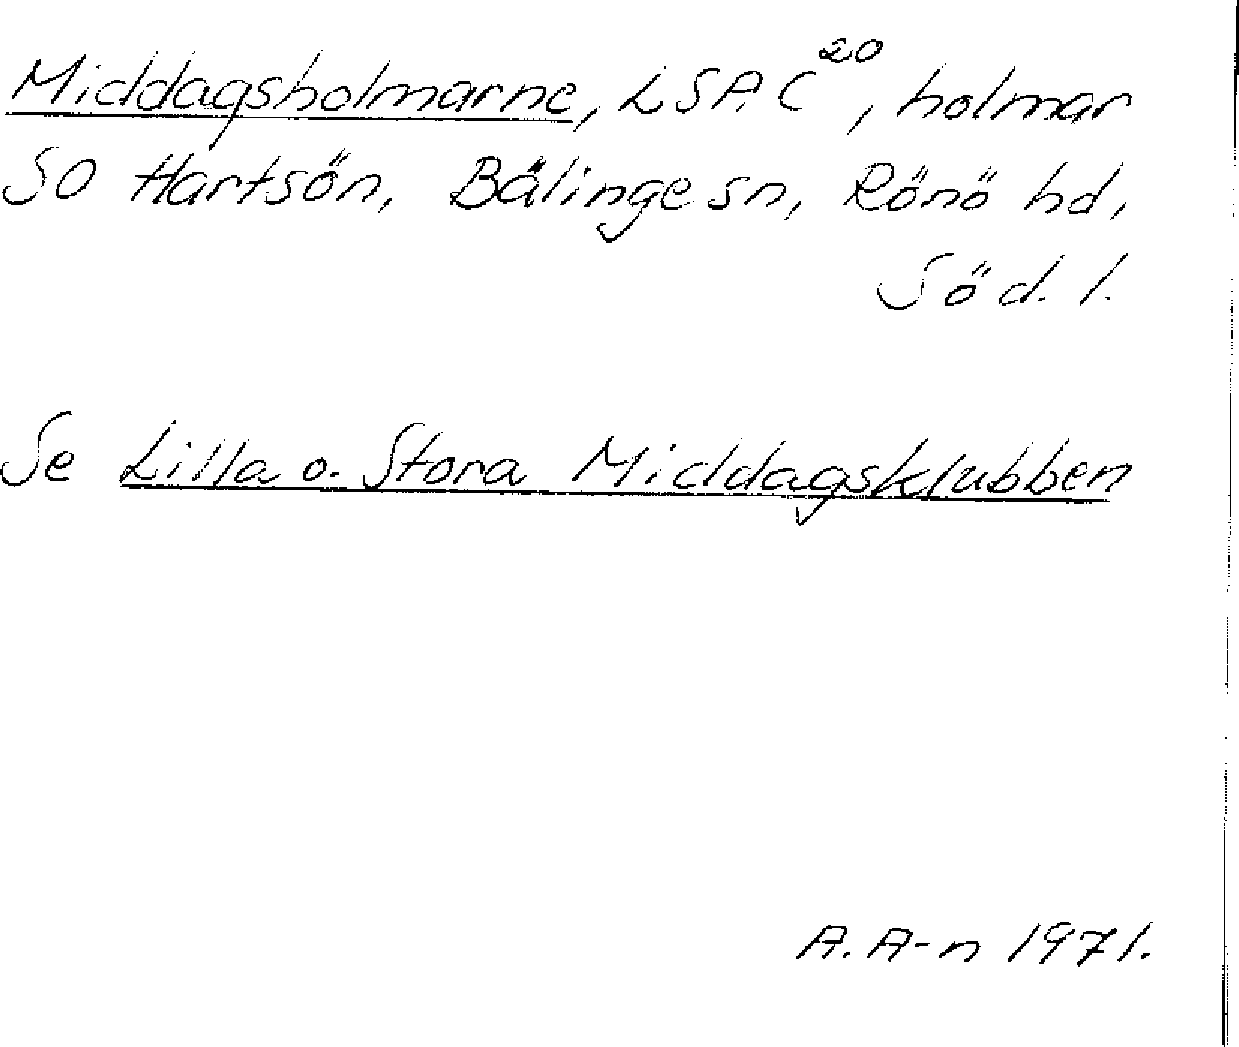 Middagsholmarne, LSA C²⁰, holmar
SO Hartsön, Bälinge sn, Rönö hd,
Söd. l.
Se Lilla o. Stora Middagsklubben
A. A-n 1971.